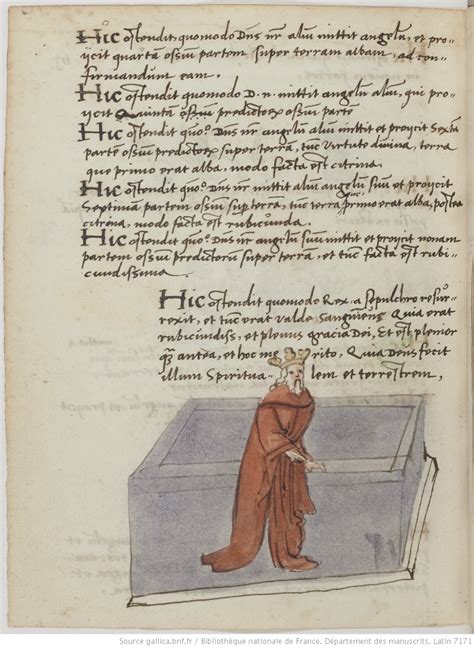 Hic ostendit, quomodo Dns nr aliu mittit angelu, et pro-
ijcit quartā ossiū partem super terram albam, ad con-
firmandum eam.
Hic ostendit quomodo D. n. mittit angelū alium, qui pro-
ijcit Quintā ossiū predictorx ossiū parte
Hic ostendit quo. Dns nr angelū alium mittit et proijcit Sextā
partem ossiū predictorx super terrā, tuc Virtute divina, terra
que primo erat alba, modo facta est citrina.
Hic ostendit quo. Dns nr aliū angelū suū et proijcit
Septimam partem ossiū sup terrā, tuc terra primo erat alba, postea
citrona, modo facta est rubicunda.
Hic ostendit quo. Dns nr angelū suū mittit et proijcit nonam
partem ossiū predictorum super terra, et tuc facta est rubi-
cundissima.
Hic ostendit quomodo Rex, a sepulchro resur-
rexit, et tuc erat valde Quia erat
rubicundiss, et plenus gracia Dei, Et est plenior
qz antea, et hoc merito, Quia Deus fecit
illum Spiritualem et terrestrem,
Source gallica.bnf.fr / Bibliothèque nationale de France. Département des manuscrits. Latin 7171